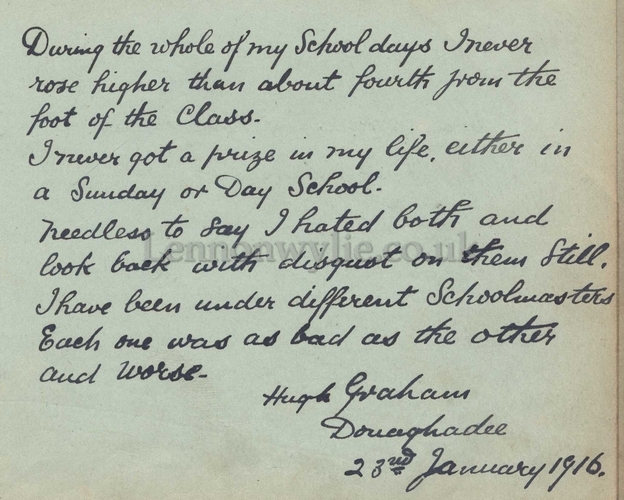 During the whole of my School days I never
rose higher than about fourth from the
foot of the Class.
I never got a prize in my life, either in
a Sunday or Day School.
Needless to say I hated both and
Lennonwylie.co.uk
look back with disgust on them Still.
I have been under different Schoolmasters
Each one was as bad as the other
and worse.
Hugh Graham
Donaghadee
23nd January 1916.